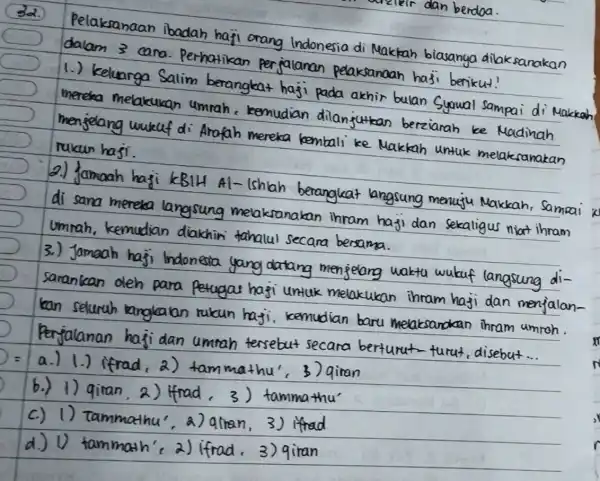 dan berdoa.
32. Pelaksanaan ibadah haji orang Indonesia di Makkah biasanya dilaksanakan
dalam 3 cara. Perhatikan perjalanan pelaksanaan haji berikut!
1.) Keluarga Salim berangkat haji pada akhir bulan Syawal sampai di Makkah
mereka melakukan umrah, kemudian dilanjutkan berziarah ke Madinah
menjelang wukuf di Arafah mereka kembali ke Makkah untuk melaksanakan
rukun haji.
2.) Jamaah haji KBIH Al-Ishlah berangkat langsung menuju Makkah, Sampai
di sana mereka langsung melaksanakan ihram haji dan sekaligus niat ihram
umrah, kemudian diakhiri tahalul secara bersama.
3.) Jamaah haji Indonesia yang datang menjelang waktu wukuf langsung di-
sarankan oleh para Petugas haji untuk melakukan ihram haji dan menjalan-
kan seluruh rangkaian rukun haji, kemudian baru melaksanakan ihram umroh.
Perjalanan haji dan umrah tersebut secara berturut-turut, disebut ...
= a.) 1.) ifrad, 2) tammathu', 3) qiran
b.) 1) qiran, 2) ifrad, 3) tammathu'
c.) 1) Tammathu', 2) qiran, 3) ifrad
d.) 1) tammath', 2) ifrad, 3) qiran